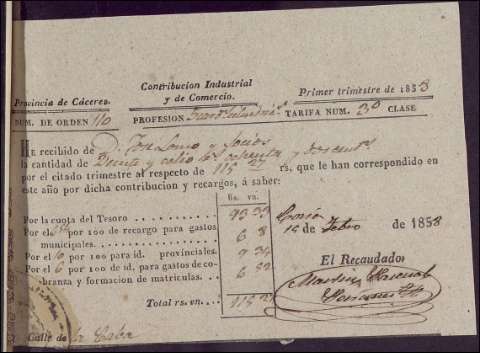 Provincia de Cáceres.
Contribucion Industrial
y de Comercio.
Primer trimestre de 1858
NUM. DE ORDEN 110
PROFESION
TARIFA NUM. 3ª CLASE
HE recibido de D. José y Socios
la cantidad de Veinte y ocho
por el citado trimestre al respecto de 115 27 rs, que le han correspondido en
este año por dicha contribucion y recargos, á saber:
Rs. vn.
Por la cuota del Tesoro
Por el por 100 de recargo para gastos
municipales. 6 8
Por el 10 por 100 para id. provinciales. 9 34
Por el 6 por 100 de id. para gastos de co-
branza y formacion de matrículas. 6 52
Total rs. vn. 115 27
Coria
15 de Febro de 1858
El Recaudador
Martin Pascual
Calle de la